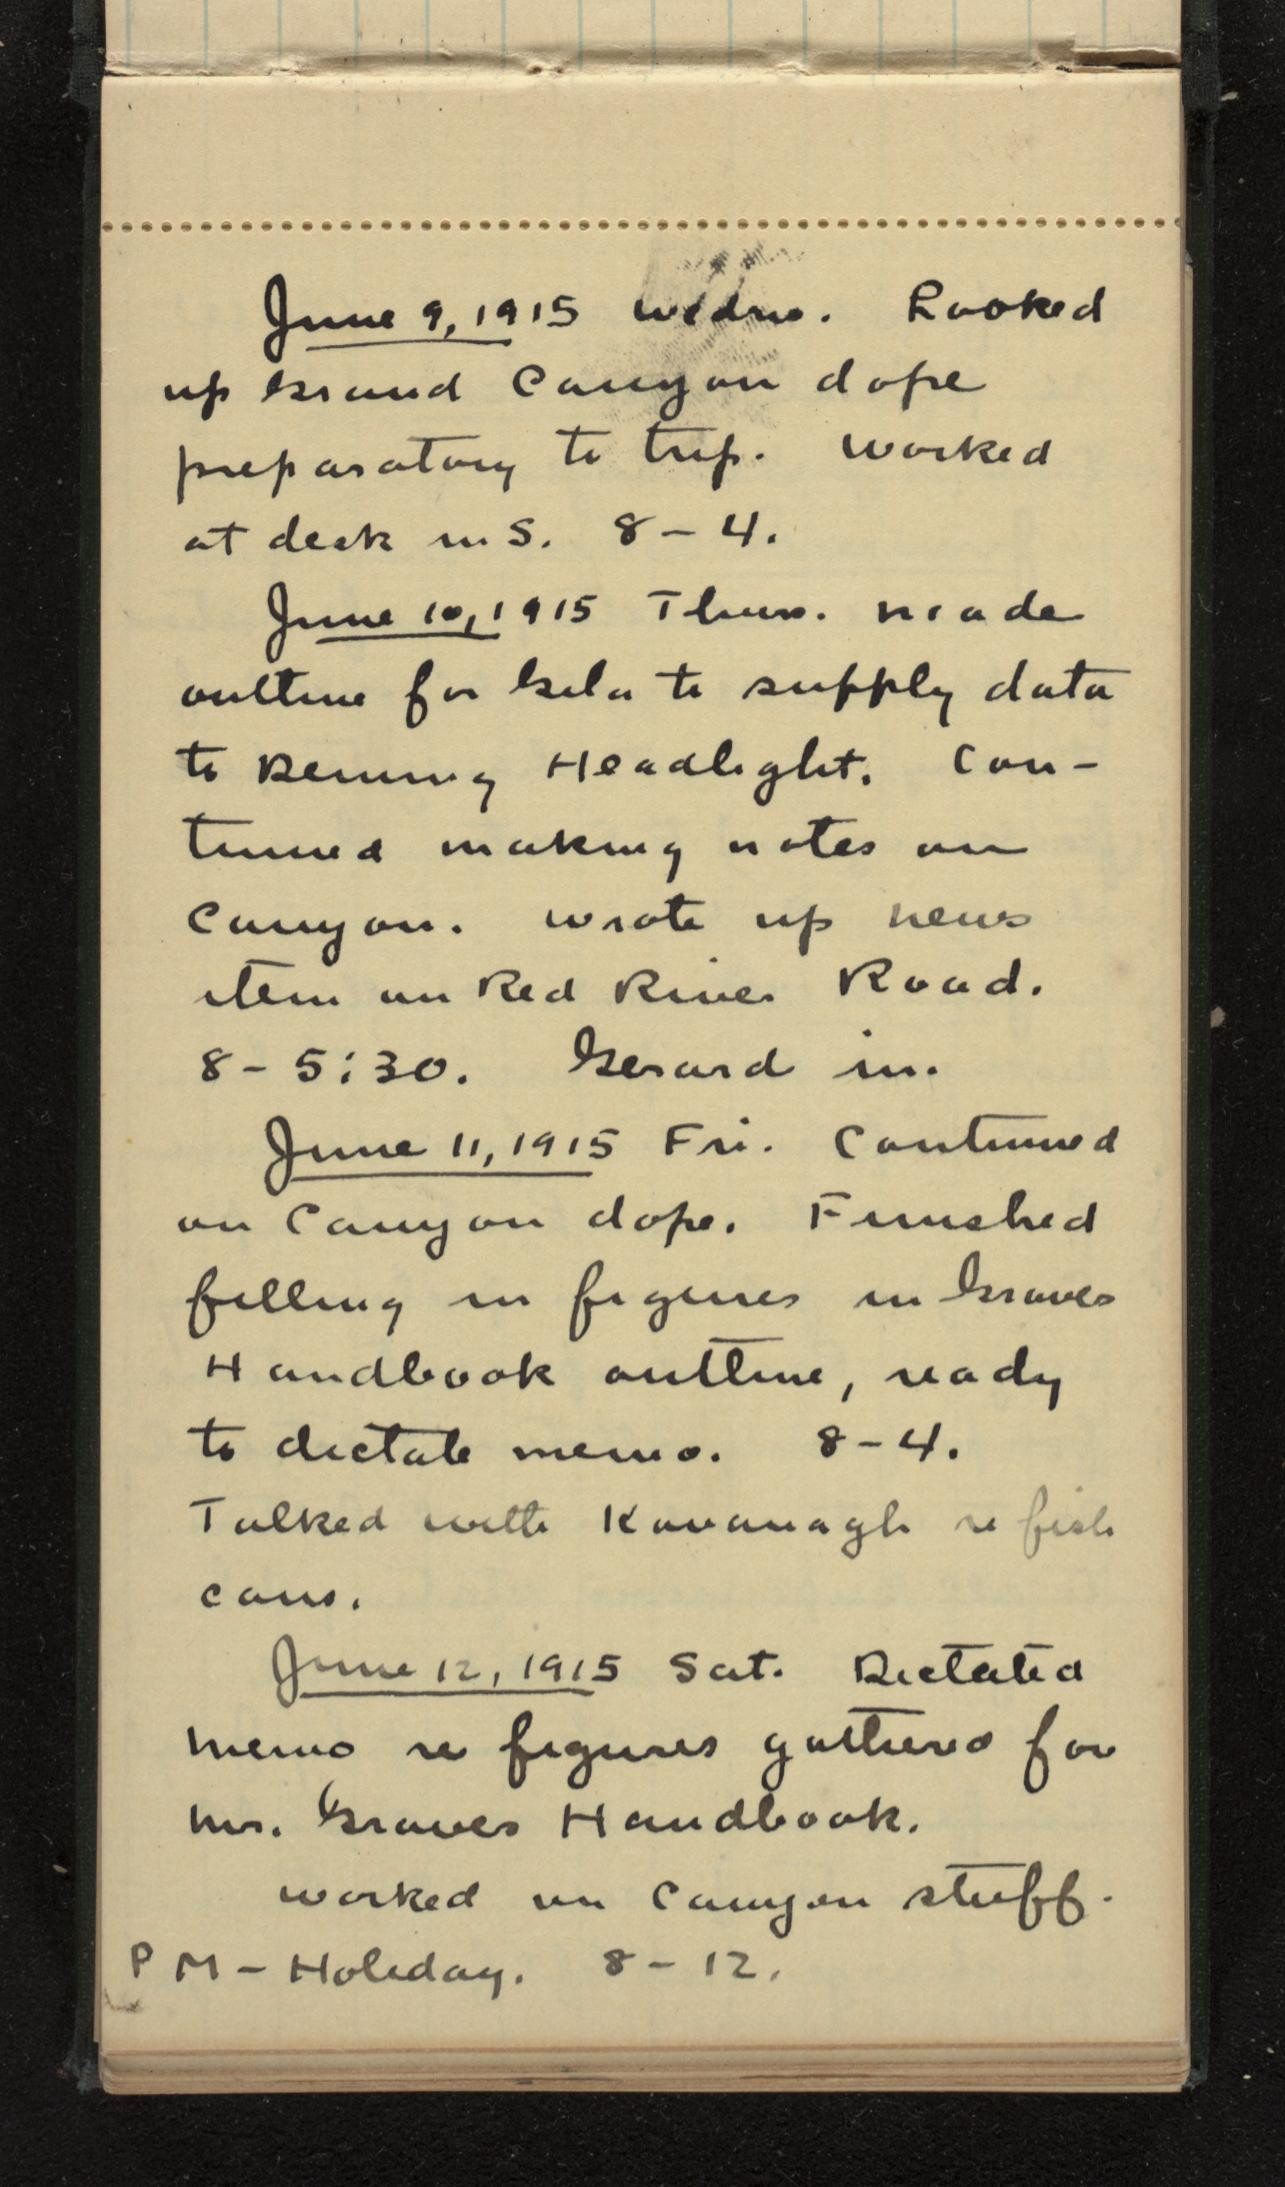 June 9, 1915 Wedns. Looked
up Grand Canyon dope
preparatory to trip. Worked
at desk in S. 8 - 4.
June 10, 1915 Thurs. Made
outline for Gila to supply data
to Deming Headlight. Con-
tinued making notes on
Canyon. Wrote up news
item on Red River Road.
8 - 5:30. Gerard in.
June 11, 1915 Fri. Continued
on Canyon dope. Finished
filling in figures in Graves
Handbook outline, ready
to dictate memo. 8 - 4.
Talked with Kavanagh re fish
cans.
June 12, 1915 Sat. Dictated
memo re figures gathered for
Mr. Graves Handbook.
Worked on Canyon stuff.
PM - Holiday. 8 - 12.